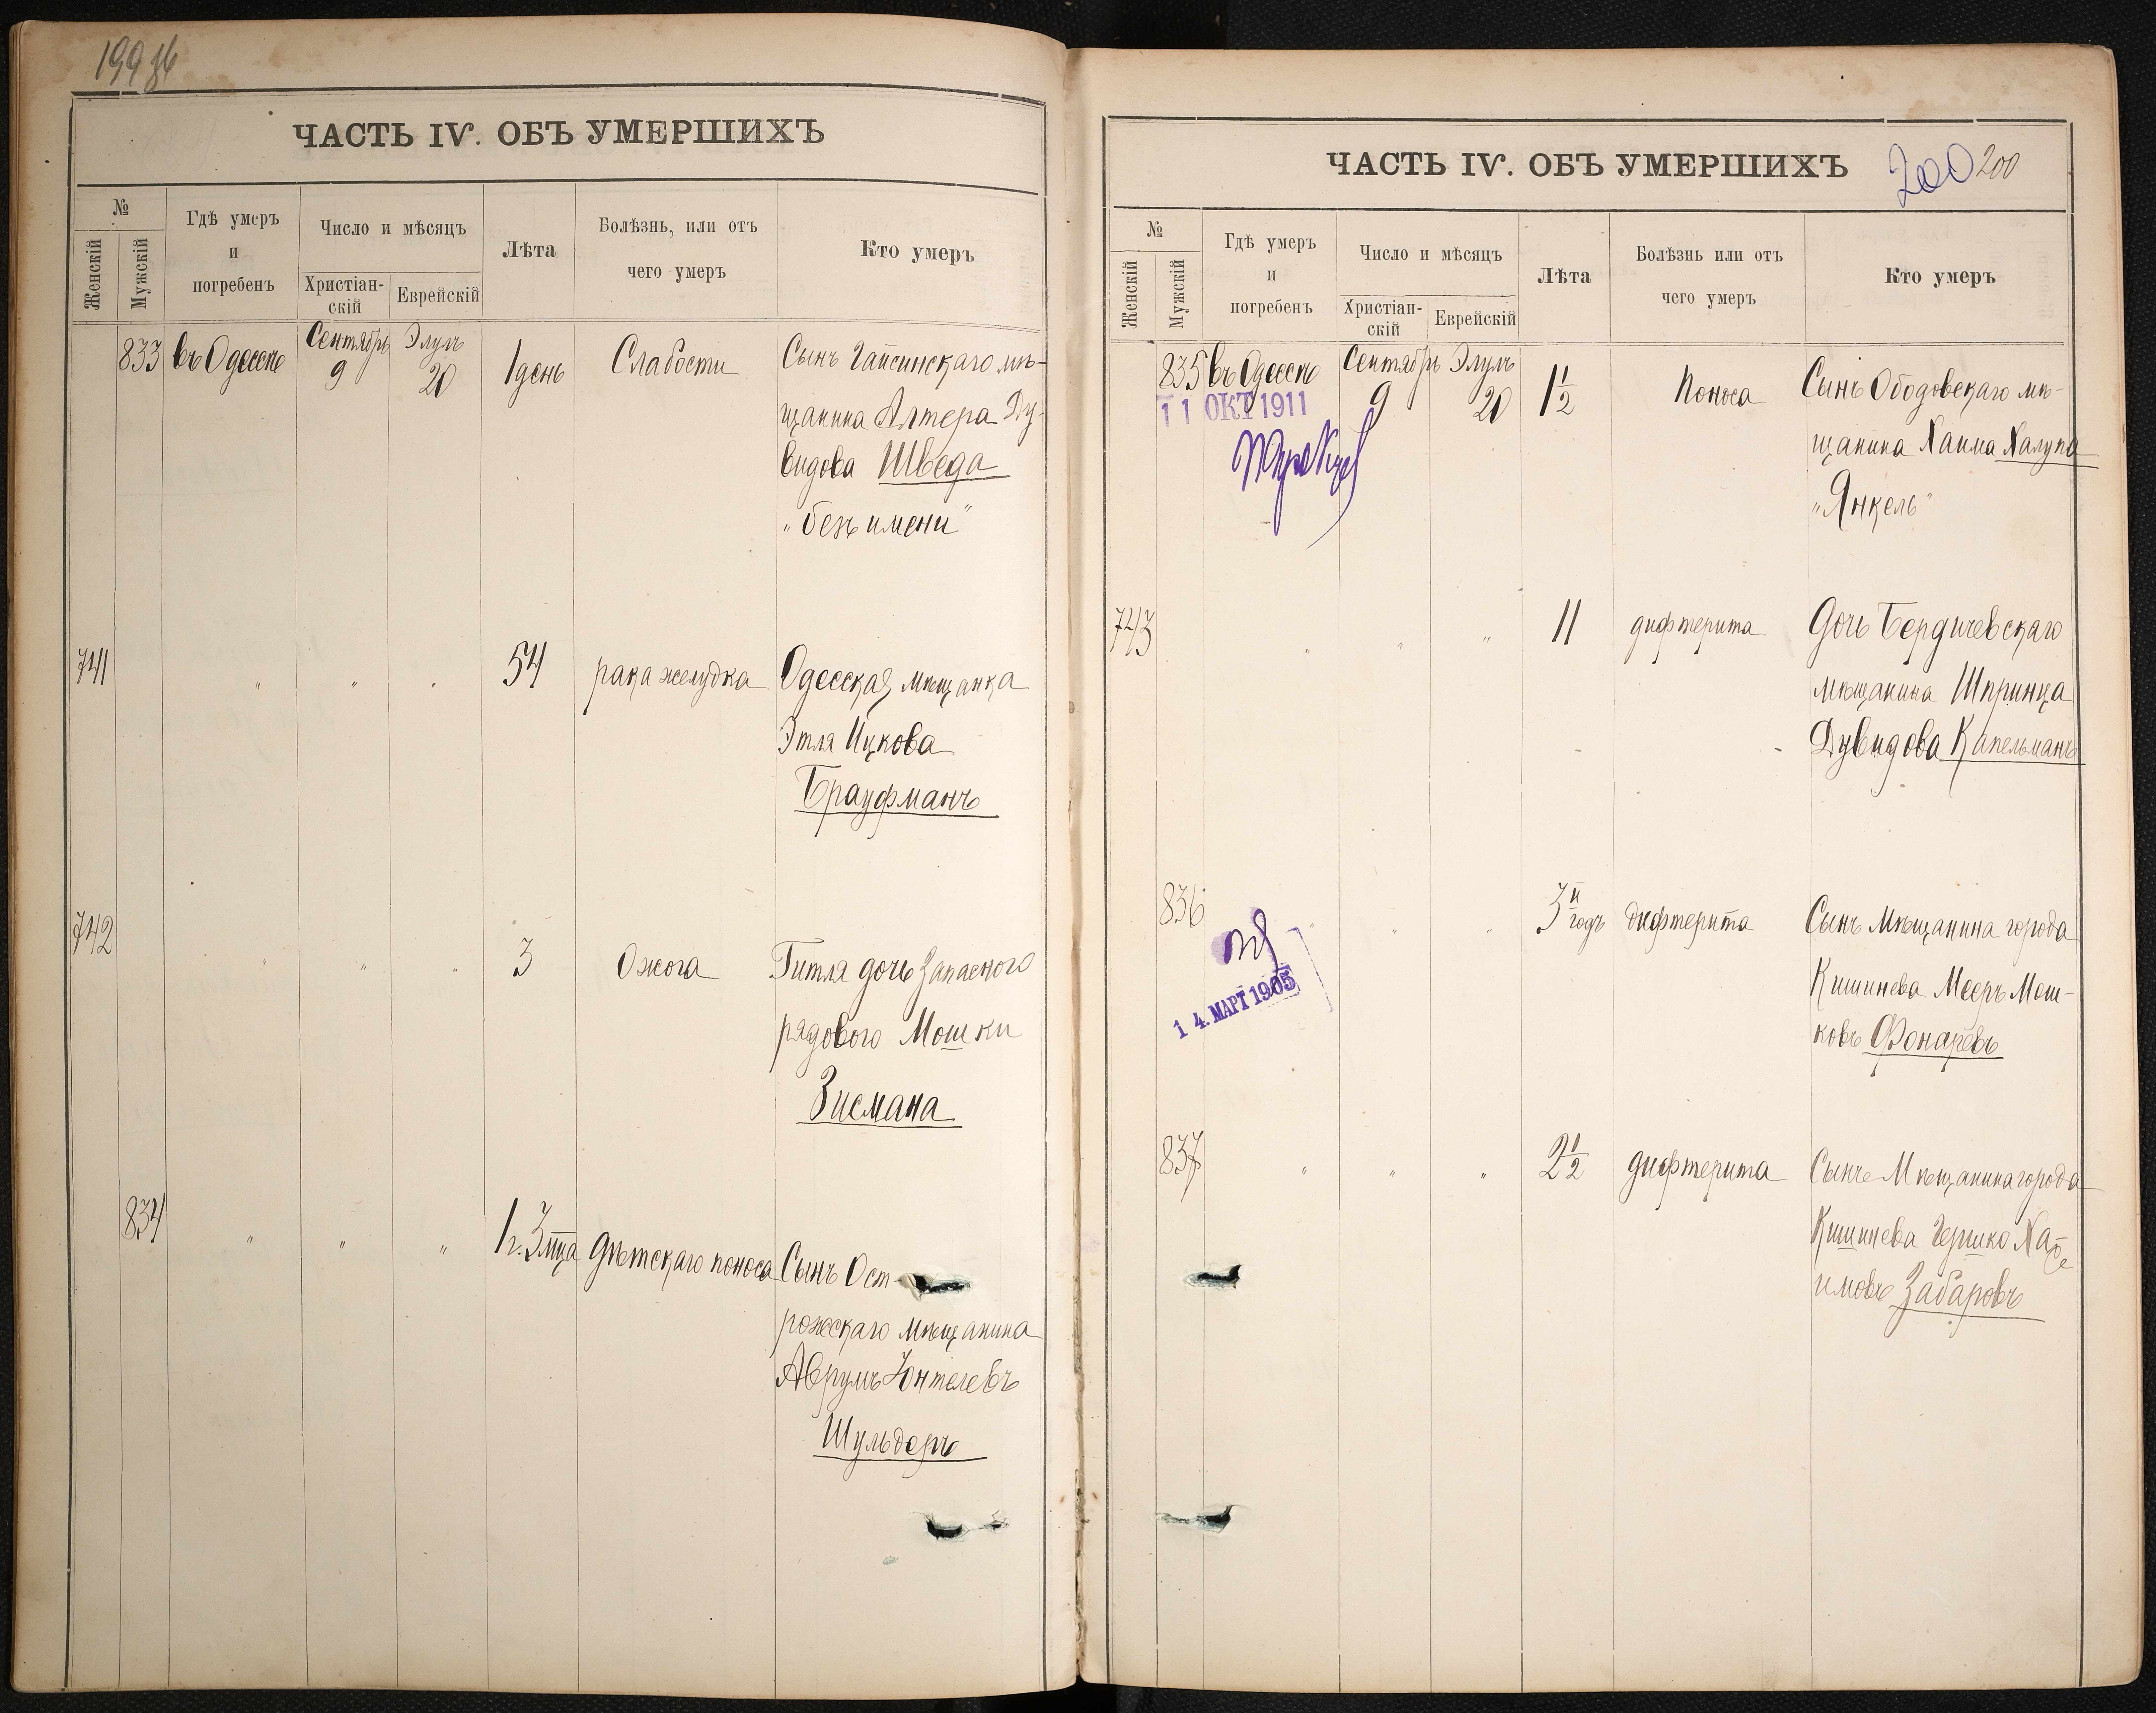 199 об
ЧАСТЬ IV. ОБЪ УМЕРШИХЪ
№
Женскій
Мужскій
Гдѣ умеръ
и
погребенъ
Число и мѣсяцъ
Христіан-
скій
Еврейскій
Лѣта
Болѣзнь, или отъ
чего умеръ
Кто умеръ
833 въ Одессѣ Сентябрь 9 Элулъ 20 1 день Слабости Сынъ Гайсинскаго мѣ-
щанина Алтера Ду-
видова Шведа
„безъ имени"
741 " " " 54 рака желудка Одесская мѣщанка
Этля Ицкова
Брауфманъ
742 " " " 3 Ожога Гитля дочь Запасного
рядового Мошки
Зисмана
834 " " " 1 г. 3 мѣца дѣтскаго поноса Сынъ Ост-
рожскаго мѣщанина
Аврумъ Юнтелевъ
Шульдеръ
ЧАСТЬ IV. ОБЪ УМЕРШИХЪ
200 200
№
Женскій
Мужскій
Гдѣ умеръ
и
погребенъ
Число и мѣсяцъ
Христіан-
скій
Еврейскій
Лѣта
Болѣзнь или отъ
чего умеръ
Кто умеръ
835 въ Одессѣ Сентябрь 9 Элулъ 20 1½ Поноса Сынъ Ободовскаго мѣ-
щанина Хаима Халупа
„Янкель"
11 ОКТ 1911
743 " " " 11 дифтерита Дочь Бердичевскаго
мѣщанина Шпринца
Дувидова Капельманъ
836 " " 3й годъ дифтерита Сынъ Мѣщанина города
Кишинева Мееръ Мош-
ковъ Фонаревъ
14 МАРТ 1905
837 " " " 2½ дифтерита Сынъ Мѣщанина города
Кишинева Гершко Ха-
имовъ Забаровъ